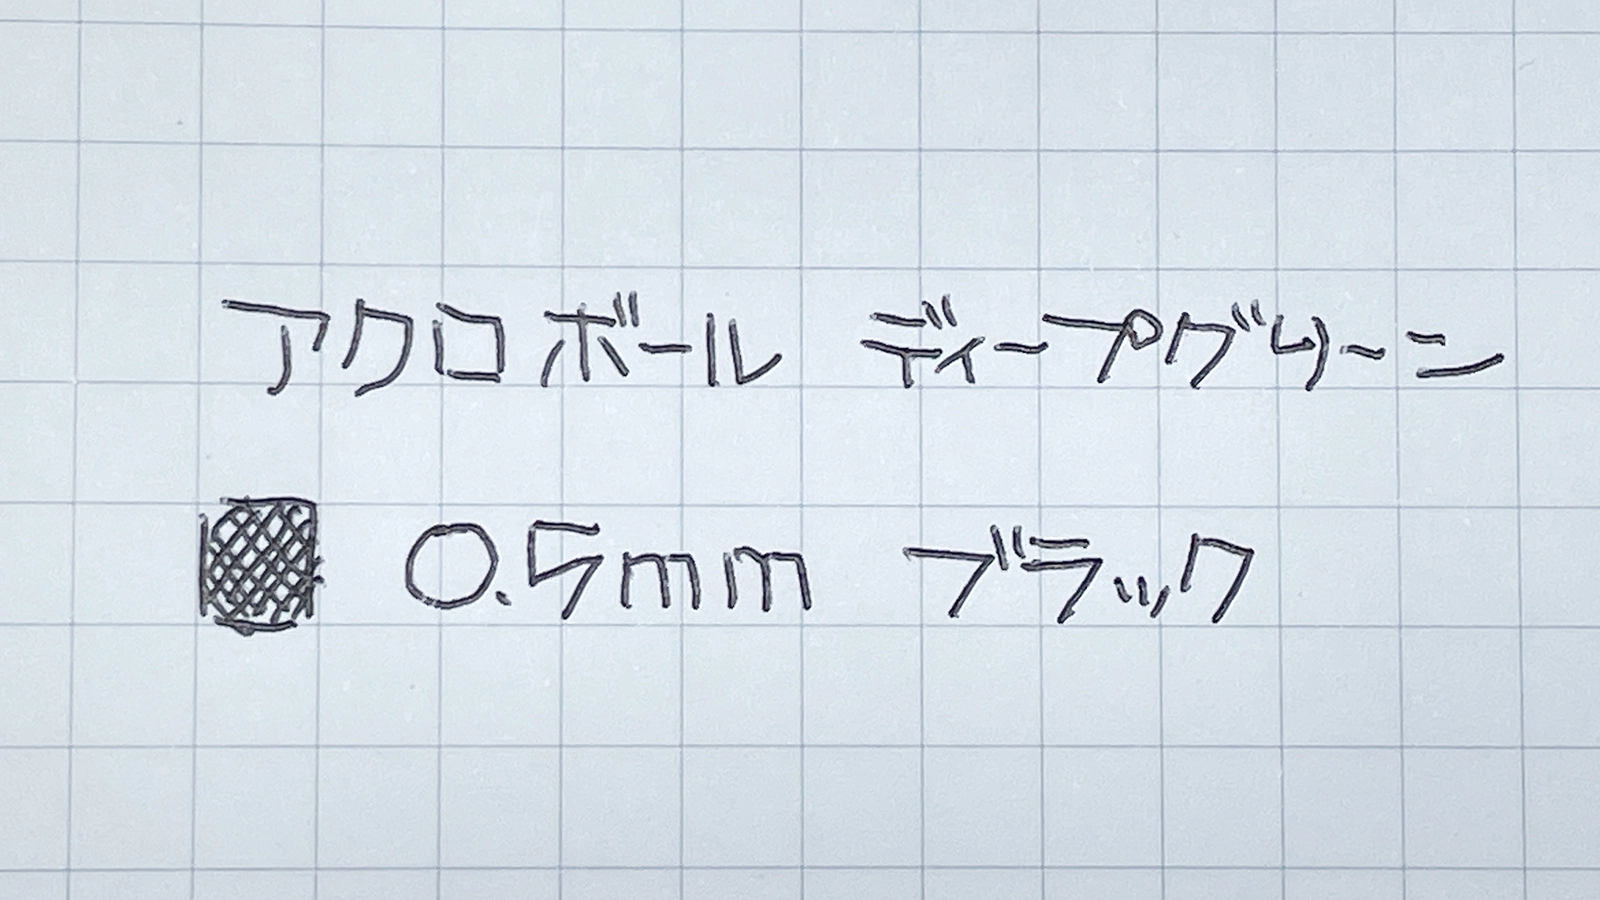 アクロボール ディープグリーン
0.5mm ブラック